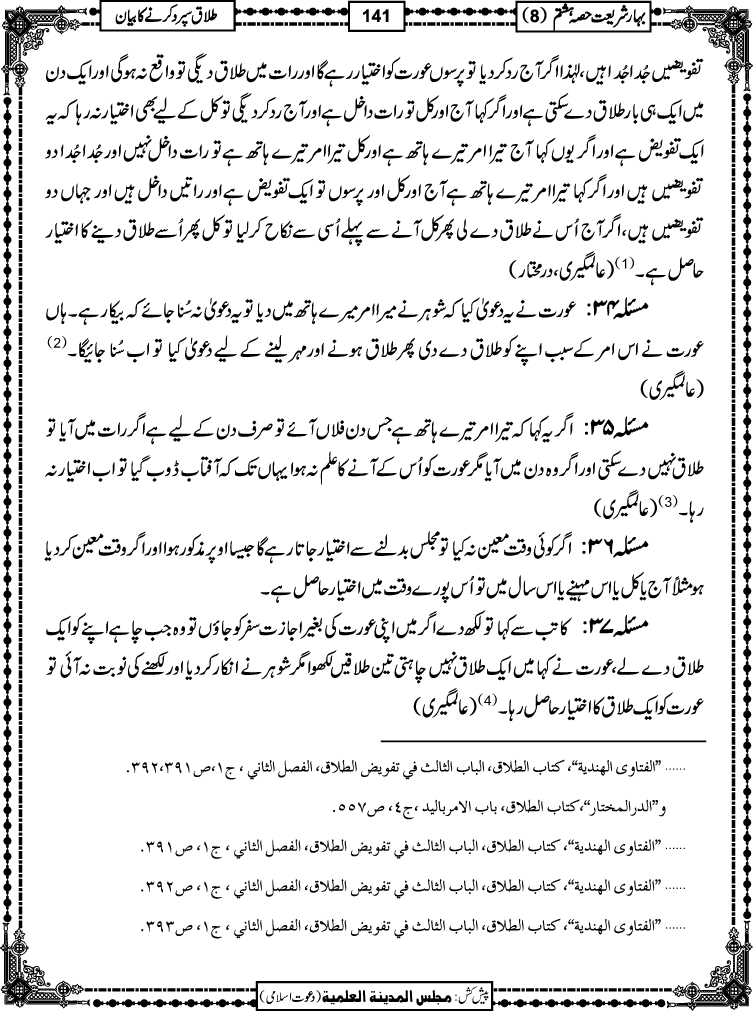 بہارِ شریعت حصہ ہشتم (8)
141
طلاق سپرد کرنے کا بیان
تفویضیں جُدا جُدا ہیں، لہٰذا اگر آج رد کر دیا تو پرسوں عورت کو اختیار رہے گا اور رات میں طلاق دیگی تو واقع نہ ہوگی اور ایک دن
میں ایک ہی بار طلاق دے سکتی ہے اور اگر کہا آج اور کل تو رات داخل ہے اور آج رد کر دیگی تو کل کے لیے بھی اختیار نہ رہا کہ یہ
ایک تفویض ہے اور اگر یوں کہا آج تیرا امر تیرے ہاتھ ہے اور کل تیرا امر تیرے ہاتھ ہے تو رات داخل نہیں اور جُدا جُدا دو
تفویضیں ہیں اور اگر کہا تیرا امر تیرے ہاتھ ہے آج اور کل اور پرسوں تو ایک تفویض ہے اور راتیں داخل ہیں اور جہاں دو
تفویضیں ہیں، اگر آج اُس نے طلاق دے لی پھر کل آنے سے پہلے اُسی سے نکاح کر لیا تو کل پھر اُسے طلاق دینے کا اختیار
حاصل ہے۔(1) (عالمگیری، درمختار)
مسئلہ ۳۴: عورت نے یہ دعویٰ کیا کہ شوہر نے میرا امر میرے ہاتھ میں دیا تو یہ دعویٰ نہ سُنا جائے کہ بیکار ہے۔ ہاں
عورت نے اس امر کے سبب اپنے کو طلاق دے دی پھر طلاق ہونے اور مہر لینے کے لیے دعویٰ کیا تو اب سُنا جائیگا۔(2)
(عالمگیری)
مسئلہ ۳۵: اگر یہ کہا کہ تیرا امر تیرے ہاتھ ہے جس دن فلاں آئے تو صرف دن کے لیے ہے اگر رات میں آیا تو
طلاق نہیں دے سکتی اور اگر وہ دن میں آیا مگر عورت کو اُس کے آنے کا علم نہ ہوا یہاں تک کہ آفتاب ڈوب گیا تو اب اختیار نہ
رہا۔(3) (عالمگیری)
مسئلہ ۳۶: اگر کوئی وقت معین نہ کیا تو مجلس بدلنے سے اختیار جاتا رہے گا جیسا اوپر مذکور ہوا اور اگر وقت معین کر دیا
ہو مثلاً آج یا کل یا اس مہینے یا اس سال میں تو اُس پورے وقت میں اختیار حاصل ہے۔
مسئلہ ۳۷: کاتب سے کہا تو لکھ دے اگر میں اپنی عورت کی بغیر اجازت سفر کو جاؤں تو وہ جب چاہے اپنے کو ایک
طلاق دے لے، عورت نے کہا میں ایک طلاق نہیں چاہتی تین طلاقیں لکھوا مگر شوہر نے انکار کر دیا اور لکھنے کی نوبت نہ آئی تو
عورت کو ایک طلاق کا اختیار حاصل رہا۔(4) (عالمگیری)
...... ”الفتاوی الهندية“، كتاب الطلاق، الباب الثالث في تفويض الطلاق، الفصل الثاني ، ج١،ص٣٩٢،٣٩١.
و”الدرالمختار“، كتاب الطلاق، باب الامرباليد ، ج٤، ص٥٥٧.
...... ”الفتاوی الهندية“، كتاب الطلاق، الباب الثالث في تفويض الطلاق، الفصل الثاني ، ج١، ص٣٩١.
...... ”الفتاوی الهندية“، كتاب الطلاق، الباب الثالث في تفويض الطلاق، الفصل الثاني ، ج١، ص٣٩٢.
...... ”الفتاوی الهندية“، كتاب الطلاق، الباب الثالث في تفويض الطلاق، الفصل الثاني ، ج١، ص٣٩٣.
پیش کش: مجلس المدينة العلمية (دعوت اسلامی)